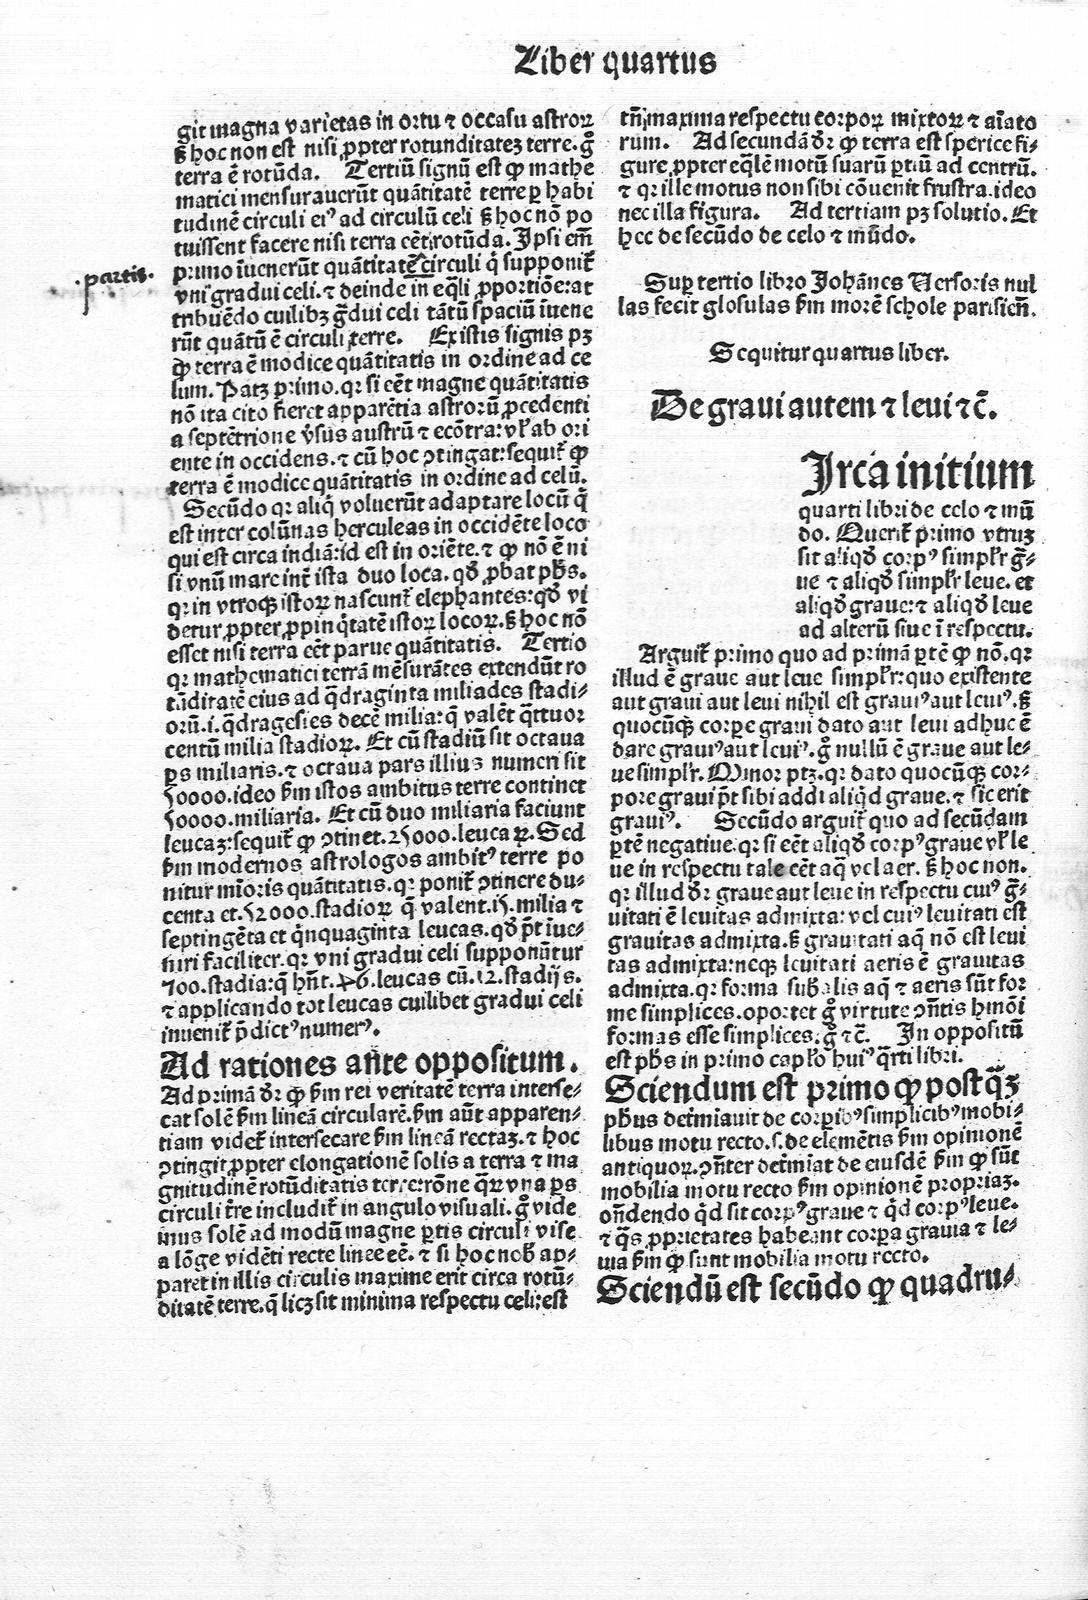 Liber quartus
git magna varietas in ortu ⁊ occasu astroꝝ
sꝫ hoc non est nisi ꝓpter rotunditateꝫ terre. gͦ
terra ē rotūda. Tertiū signū est ꝙ mathe
matici mensurauerūt quātitatē terre ꝑ habi
tudinē circuli eiꝰ ad circulū celi sꝫ hoc nō po
tuissent facere nisi terra eēt rotūda. Ipsi em̄
primo īuenerūt quātitatē circuli q̇ supponit̄
partis.
vni gradui celi. ⁊ deinde in eq̄li ꝓportiōe: at
tribuēdo cuilibꝫ gͣdui celi tātū spaciū īuene
rūt quātū ē circuli terre. Ex istis signis pꝫ
ꝙ terra ē modice quātitatis in ordine ad ce
lum. Patꝫ primo. qꝛ si eēt magne quātitatis
nō ita cito fieret apparētia astrorū ꝓcedenti
a septētrione v̄sus austrū ⁊ ecōtra: vl̄ ab ori
ente in occidens. ⁊ cū hoc ꝯtingat: sequit̄ ꝙ
terra ē modice quātitatis in ordine ad celū.
Secūdo qꝛ aliq̇ voluerūt adaptare locū q̄
est inter colūnas herculeas in occidēte loco
qui est circa indiā: id est in oriēte. ⁊ ꝙ nō ē ni
si vnū mare int̄ ista duo loca. qd̄ ꝓbat ph̄s.
qꝛ in vtroqꝫ istoꝝ nascunt̄ elephantes: qd̄ vi
detur ꝓpter ꝓpinq̇tatē istoꝝ locoꝝ. sꝫ hoc nō
esset nisi terra eēt parue quātitatis. Tertio
qꝛ mathematici terrā mēsurātes extendūt ro
tūditatē eius ad q̄draginta miliades stadi-
orū. i. q̄dragesies decē milia: q̄ valēt q̄ttuor
centū milia stadioꝝ. Et cū stadiū sit octaua
ꝑs miliaris. ⁊ octaua pars illius numeri sit
50000. ideo ẜm istos ambitus terre continet
50000. miliaria. Et cū duo miliaria faciunt
leucaꝫ: sequit̄ ꝙ ꝯtinet. 25000. leucaꝝ. Sed
ẜm modernos astrologos ambitꝰ terre po
nitur mīoris quātitatis. qꝛ ponit̄ ꝯtinere du-
centa et. 52000. stadioꝝ q̄ valent. 15. milia ⁊
septingēta et q̇nquaginta leucas. qd̄ pt̄ iue-
niri faciliter. qꝛ vni gradui celi supponūtur
700. stadia: q̄ hn̄t. 46. leucas cū. 12. stadijs.
⁊ applicando tot leucas cuilibet gradui celi
inuenit̄ p̄dictꝰ numerꝰ.
Ad rationes ante oppositum.
Ad primā dr̄ ꝙ ẜm rei veritatē terra interse-
cat solē ẜm lineā circularē. ẜm aūt apparen-
tiam videt̄ intersecare ẜm lineā rectaꝫ. ⁊ hoc
ꝯtingit ꝓpter elongationē solis a terra ⁊ ma
gnitudinē rotūditatis terre rōne vna ꝑs
circuli tr̄e includit̄ in angulo visuali. gͦ vide
mus solē ad modū magne ꝑtis circuli vise
a lōge vidēti recte linee eē. ⁊ si hoc nob̄ ap-
paret in illis circulis maxime erit circa rotū-
ditatē terre. q̄ licꝫ sit minima respectu celi: est
tn̄ maxima respectu corpoꝝ mixtoꝝ ⁊ aīato
rum. Ad secundā dr̄ ꝙ terra est sperice fi-
gure ꝓpter eq̄lē motū suarū ꝑtiū ad centrū.
⁊ qꝛ ille motus non sibi cōuenit frustra. ideo
nec illa figura. Ad tertiam pꝫ solutio. Et
hec de secūdo de celo ⁊ mūdo.
Suꝑ tertio libro Johānes Versoris nul
las fecit glosulas ẜm morē schole parisieñ.
Sequitur quartus liber.
De graui autem ⁊ leui ⁊c̄.
Irca initium
quarti libri de celo ⁊ mū
do. Querit̄ primo vtruꝫ
sit aliqd̄ corpꝰ simpl̄r gͣ-
ue ⁊ aliqd̄ simpl̄r leue. et
aliqd̄ graue: ⁊ aliqd̄ leue
ad alterū siue ī respectu.
Arguit̄ primo quo ad primā ꝑtē ꝙ nō. qꝛ
illud ē graue aut leue simpl̄r: quo existente
aut graui aut leui nihil est grauiꝰ aut leuiꝰ. sꝫ
quocūqꝫ corpe graui dato aut leui adhuc ē
dare grauiꝰ aut leuiꝰ. gͦ nullū ē graue aut le-
ue simpl̄r. Minor ptꝫ. qꝛ dato quocūqꝫ cor-
pore graui pt̄ sibi addi aliq̇d graue. ⁊ sic erit
grauiꝰ. Secūdo arguit̄ quo ad secūdam
ꝑtē negatiue. qꝛ si eēt aliqd̄ corpꝰ graue vl̄ le
ue in respectu tale eēt aq̄ vel aer. sꝫ hoc non.
qꝛ illud dr̄ graue aut leue in respectu cuiꝰ gͣ-
uitati ē leuitas admixta: vel cuiꝰ leuitati est
grauitas admixta. sꝫ grauitati aq̄ nō est leui
tas admixta: neqꝫ leuitati aeris ē grauitas
admixta. qꝛ forma sub̄alis aq̄ ⁊ aeris sūt for
me simplices. oportet gͦ virtute ꝯn̄tis hmōi
formas esse simplices. gͦ ⁊c̄. In oppositū
est ph̄s in primo capl̄o huiꝰ q̄rti libri.
Sciendum est primo ꝙ postq̄ꝫ
ph̄us determīauit de corꝑibꝰ simplicibꝰ mobi-
libus motu recto. s. de elemētis ẜm opinionē
antiquoꝝ. ꝯn̄ter determīat de eiusdē ẜm ꝙ sūt
mobilia motu recto ẜm opinionē propriaꝫ.
on̄dendo q̇d sit corpꝰ graue ⁊ q̇d corpꝰ leue.
⁊ q̄s ꝓprietates habeant corꝑa grauia ⁊ le-
uia ẜm ꝙ sunt mobilia motu recto.
Sciendū est secūdo ꝙ quadru-